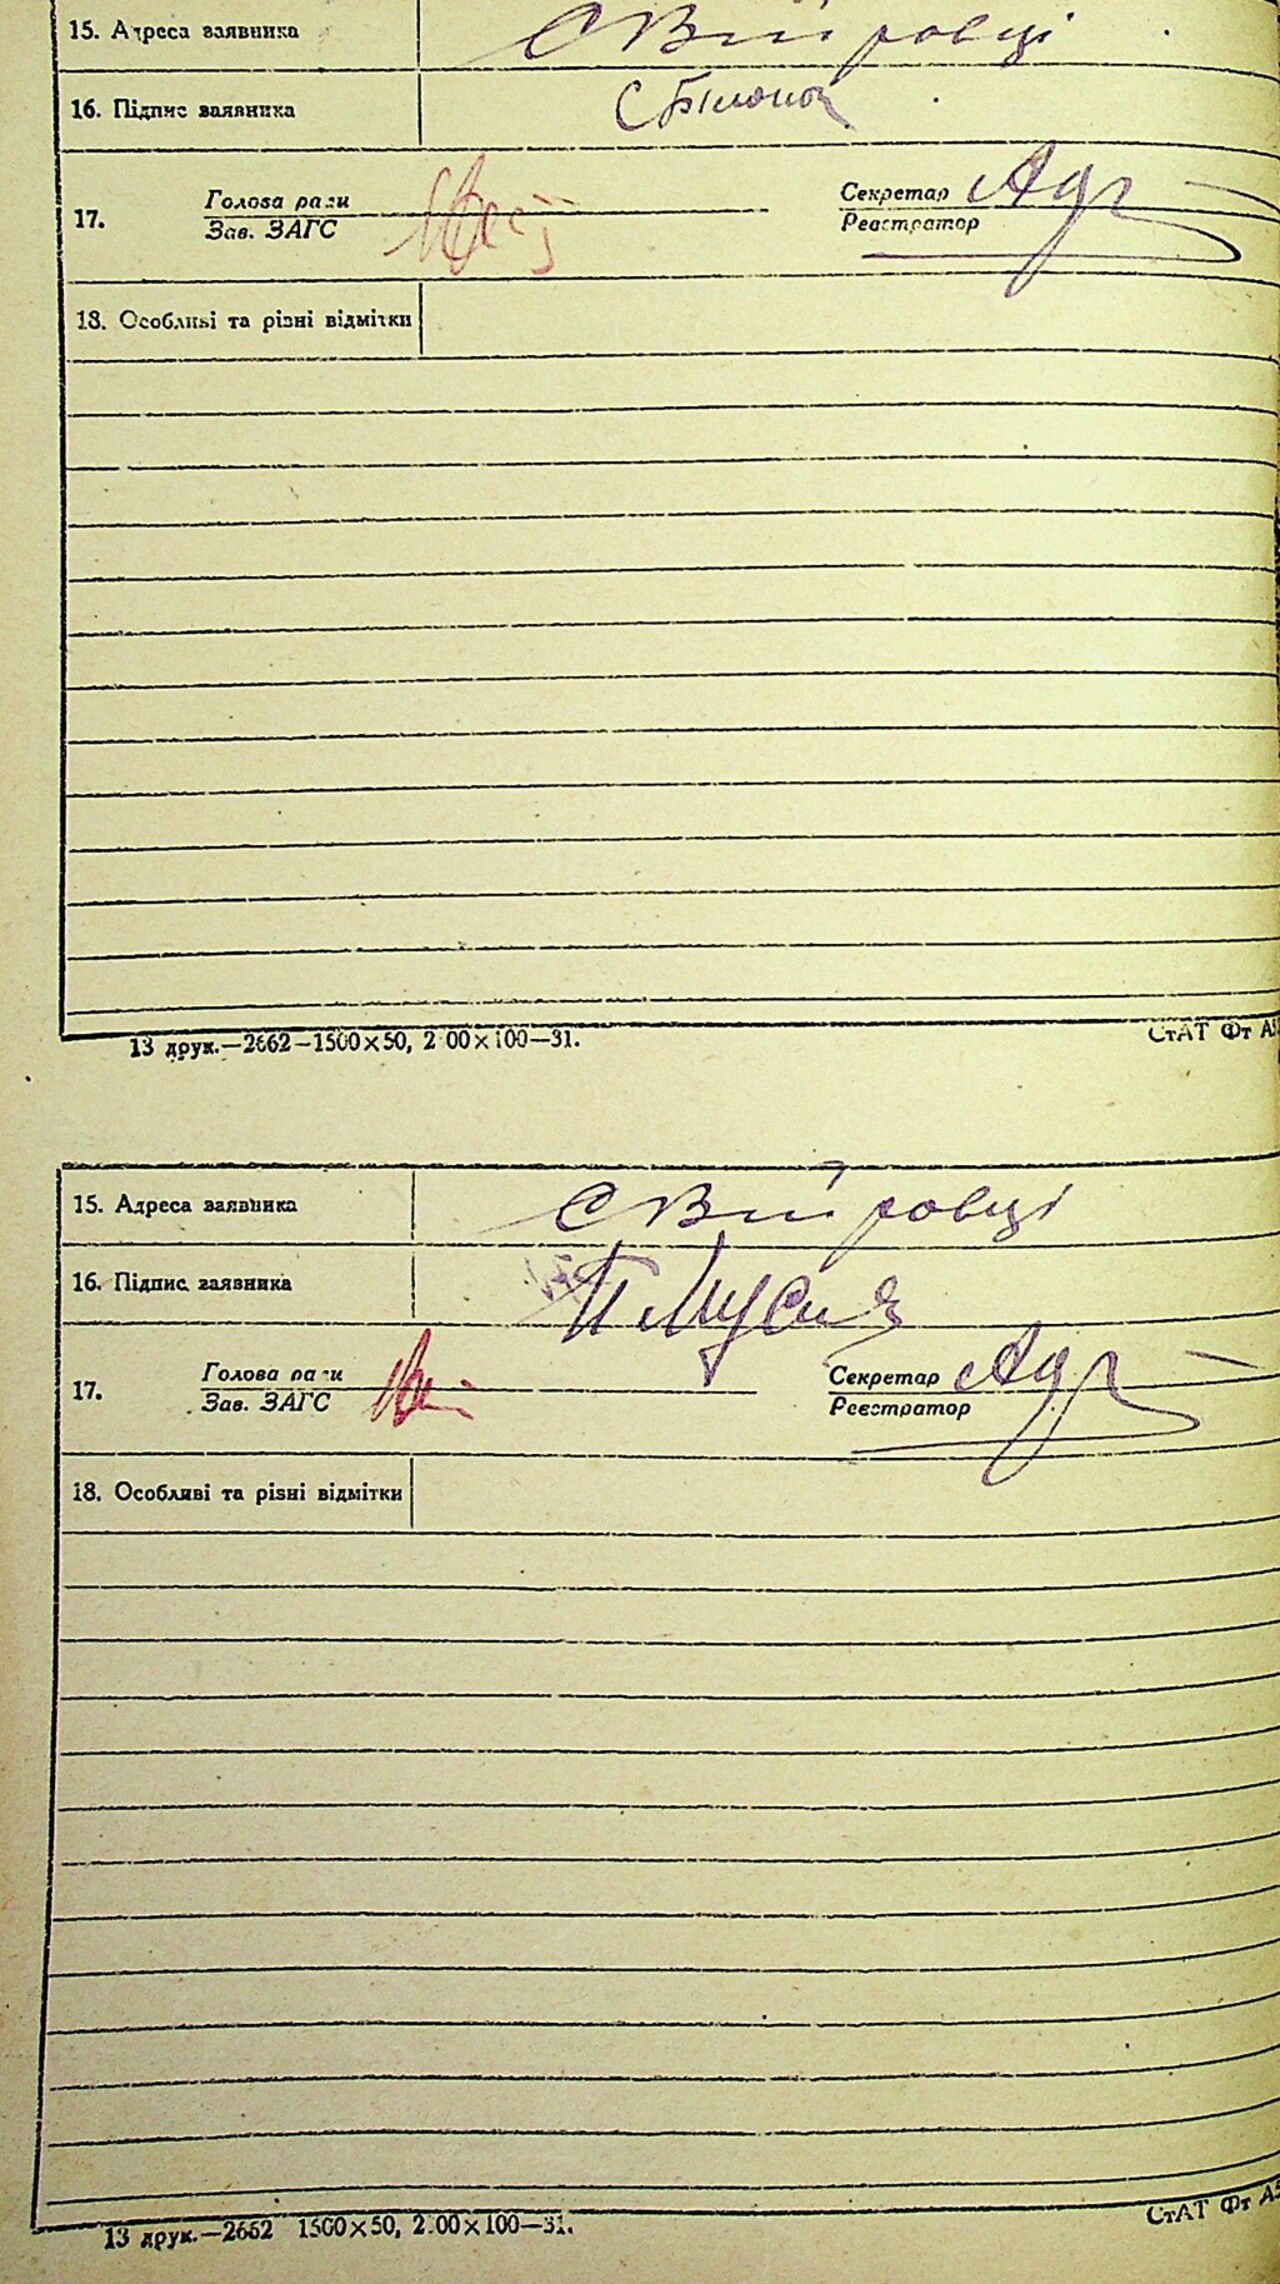 15. Адреса заявника С Війтровці
16. Підпис заявника С Білонок
17. Голова ради Секретар
Зав. ЗАГС Реєстратор
18. Особливі та різні відмітки
13 друк.—2662—1500×50, 2 00×100—31.
СтАТ Фт А5
15. Адреса заявника С Війтровці
16. Підпис заявника П Мусія
17. Голова ради Секретар
Зав. ЗАГС Реєстратор
18. Особливі та різні відмітки
13 друк.—2662 1500×50, 2.00×100—31.
СтАТ Фт А5